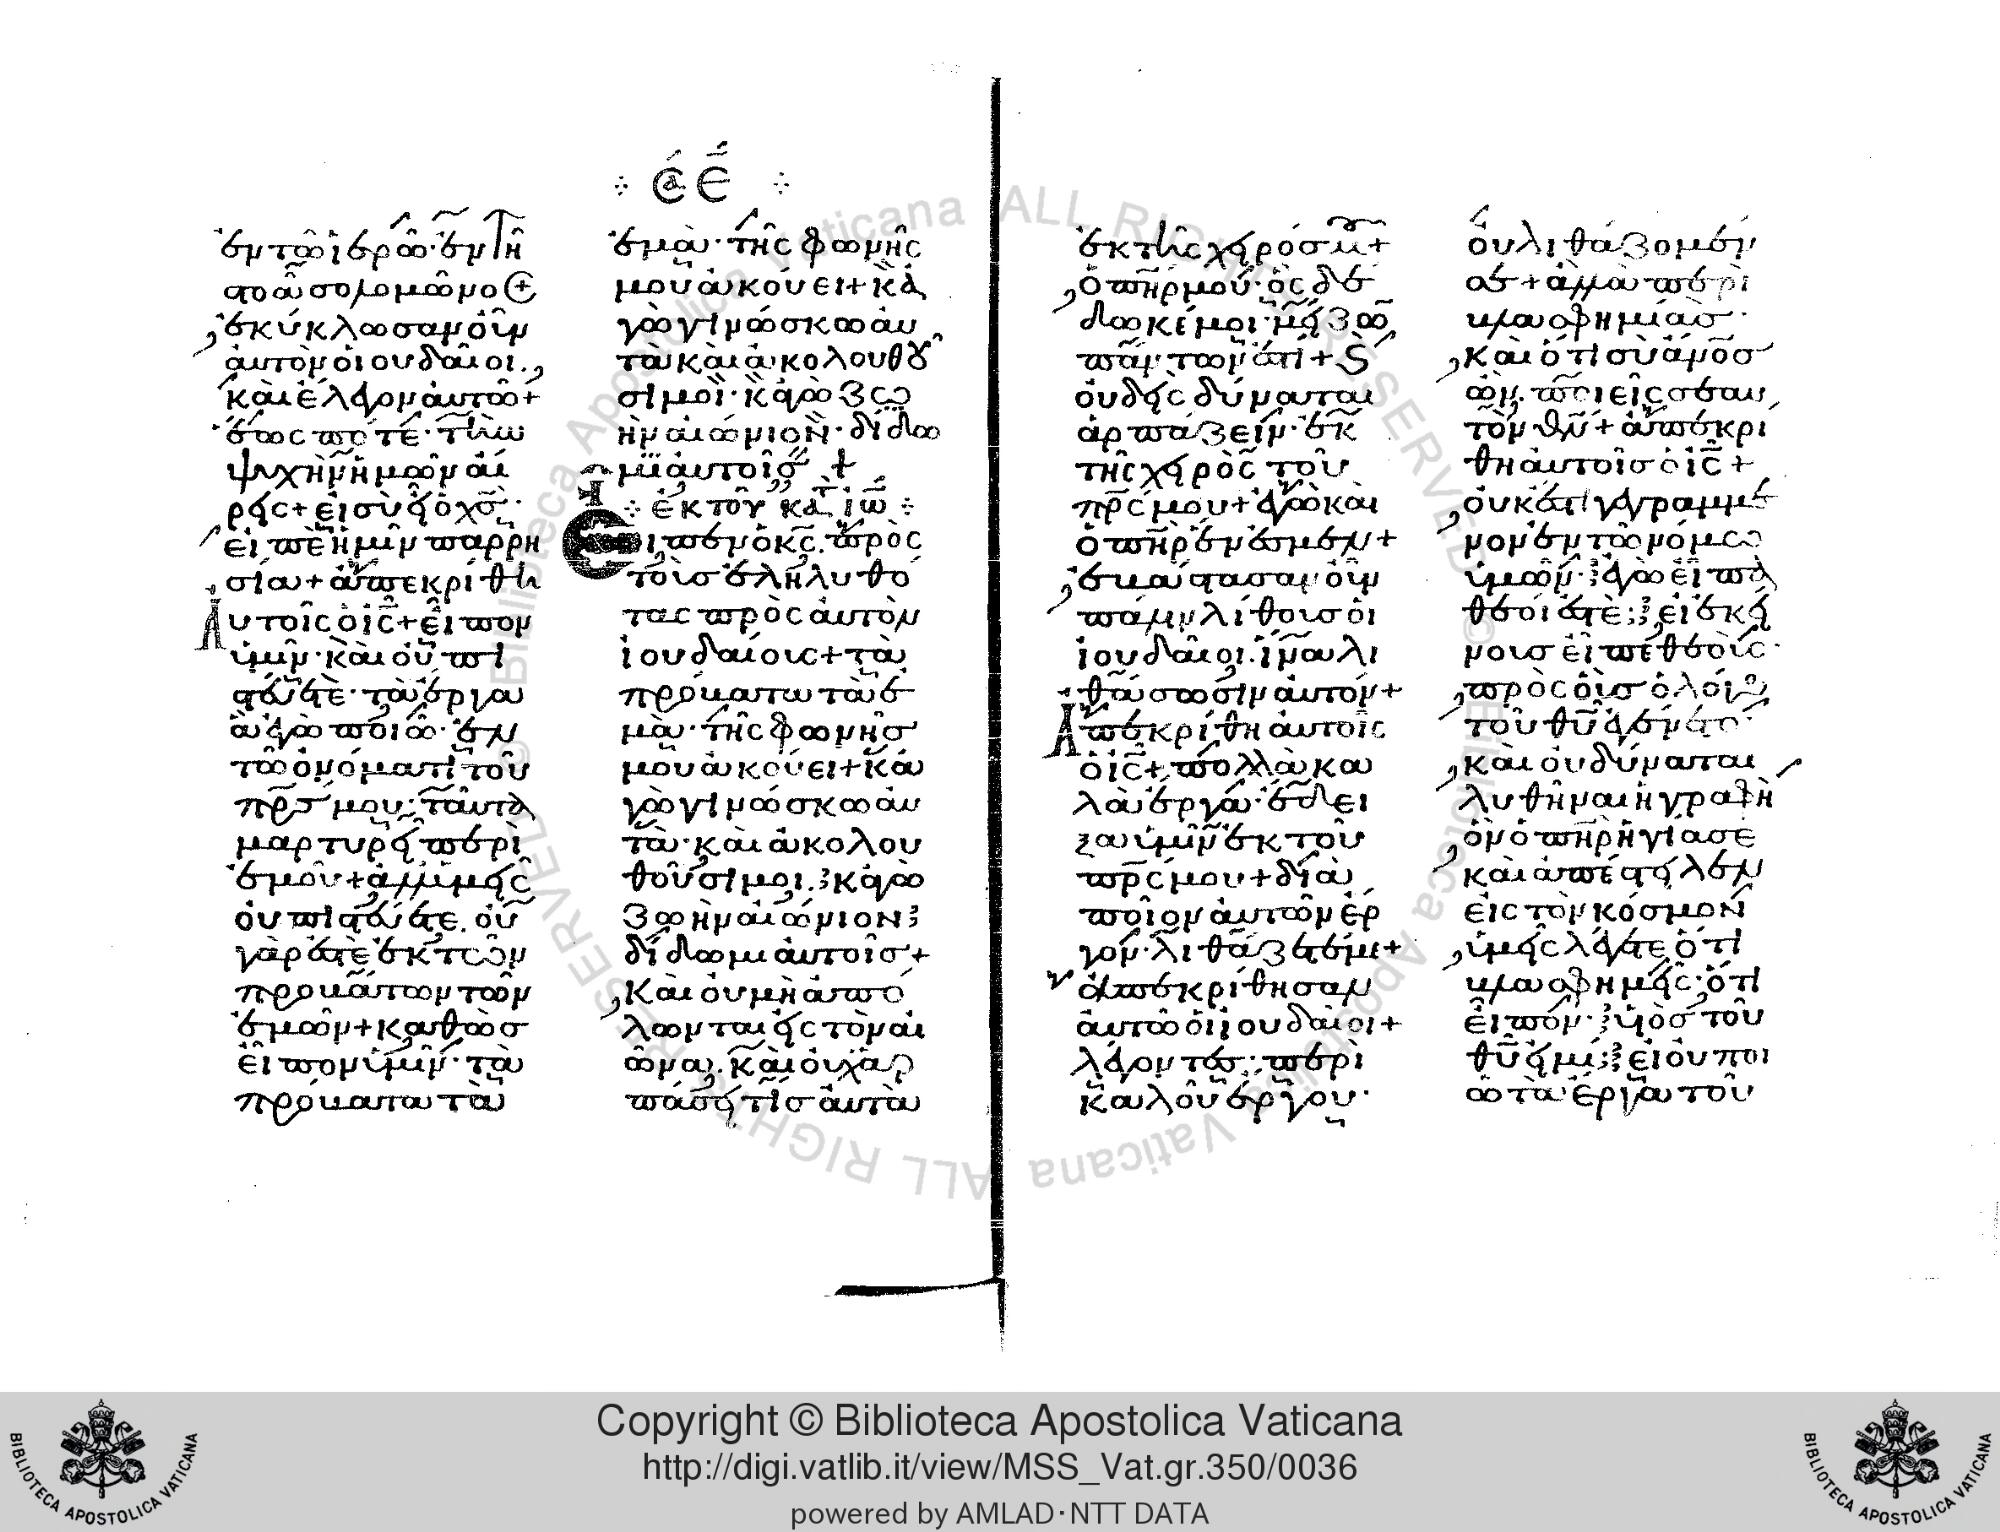 ἐν τῶ ἱερῶ· ἐν τῆ
στοᾶ σολομῶνο(ς)+
ἐκύκλωσαν οὖν
αὐτὸν οἱ ἰουδαῖοι.
καὶ ἔλεγον αὐτῶ+
ἕως πότε· τὴν
ψυχὴν ἡμῶν αἴ
ρεις+ εἰ σὺ εἶ ὁ χς·
εἰπὲ ἡμῖν παρρη
σία+ ἀπεκρίθη
αὐτοῖς ὁ ις+ εἶπον
ὑμῖν· καὶ οὐ πι
στεύετε· τὰ ἔργα
ἃ ἐγὼ ποιῶ· ἐν
τῶ ὀνόματι τοῦ
πρς μου· ταῦτα
μαρτυρεῖ περὶ
ἐμοῦ+ ἀλλ' ὑμεῖς
οὐ πιστεύετε. οὐ
γάρ ἐστε ἐκ τῶν
προβάτων τῶν
ἐμῶν+ καθὼς
εἶπον ὑμῖν· τὰ
πρόβατα τὰ
Σα Ε
ἐμὰ· τῆς φωνῆς
μου ἀκούει+ κἀ
γὼ γινώσκω αὐ
τὰ καὶ ἀκολουθοῦ
σί μοι· κἀγὼ ζω
ὴν αἰώνιον· δίδω
μι αὐτοῖς+
ἐκ τοῦ κατ ιω
Εἶπεν ὁ κς. πρὸς
τοὺς ἐληλυθό
τας πρὸς αὐτὸν
ἰουδαίους+ τὰ
πρόβατα τὰ ἐ
μὰ· τῆς φωνῆς
μου ἀκούει+ κἀ
γὼ γινώσκω αὐ
τὰ· καὶ ἀκολου
θοῦσί μοι. κἀγὼ
ζωὴν αἰώνιον
δίδωμι αὐτοῖς+
Καὶ οὐ μὴ ἀπό
λωνται εἰς τὸν αἰ
ῶνα. καὶ οὐχ ἁρ
πάσει τὶς αὐτὰ
ἐκ τῆς χειρός μου+
ὁ πηρ μου· ὃς δέ
δωκέ μοι· μείζων
πάντων ἐστί+ καὶ
οὐδεὶς δύναται
ἁρπάζειν· ἐκ
τῆς χειρὸς τοῦ
πρς μου+ ἐγὼ καὶ
ὁ πηρ ἕν ἐσμεν+
ἐβάστασαν οὖν
πάλιν λίθους οἱ
ἰουδαῖοι. ἵνα λι
θάσωσιν αὐτόν+
Ἀπεκρίθη αὐτοῖς
ὁ ις+ πολλὰ κα
λὰ ἔργα· ἔδει
ξα ὑμῖν ἐκ τοῦ
πρς μου+ διὰ
ποῖον αὐτῶν ἔρ
γον· λιθάζετέ με+
ἀπεκρίθησαν
αὐτῶ οἱ ἰουδαῖοι+
λέγοντες· περὶ
καλοῦ ἔργου·
οὐ λιθάζομέν
σε+ ἀλλὰ περὶ
βλασφημίας·
καὶ ὅτι σὺ ἄνος
ὢν. ποιεῖς σεαυ
τὸν θν+ ἀπεκρί
θη αὐτοῖς ὁ ις+
οὐκ ἔστι γεγραμμέ
νον ἐν τῶ νόμω
ὑμῶν· ἐγὼ εἶπα
θεοί ἐστε; εἰ ἐκεί
νους εἶπε θεοὺς·
πρὸς οὓς ὁ λόγος
τοῦ θυ ἐγένετο·
καὶ οὐ δύναται
λυθῆναι ἡ γραφὴ
ὃν ὁ πηρ ἡγίασε
καὶ ἀπέστειλεν
εἰς τὸν κόσμον
ὑμεῖς λέγετε ὅτι
βλασφημεῖς· ὅτι
εἶπον· υἱὸς τοῦ
θυ εἰμι; εἰ οὐ ποι
ῶ τὰ ἔργα τοῦ
Biblioteca Apostolica Vaticana ALL RIGHTS RESERVED © Biblioteca Apostolica Vaticana ALL RIGHTS RESERVED ©
Copyright © Biblioteca Apostolica Vaticana
http://digi.vatlib.it/view/MSS_Vat.gr.350/0036
powered by AMLAD·NTT DATA
BIBLIOTECA APOSTOLICA VATICANA
BIBLIOTECA APOSTOLICA VATICANA